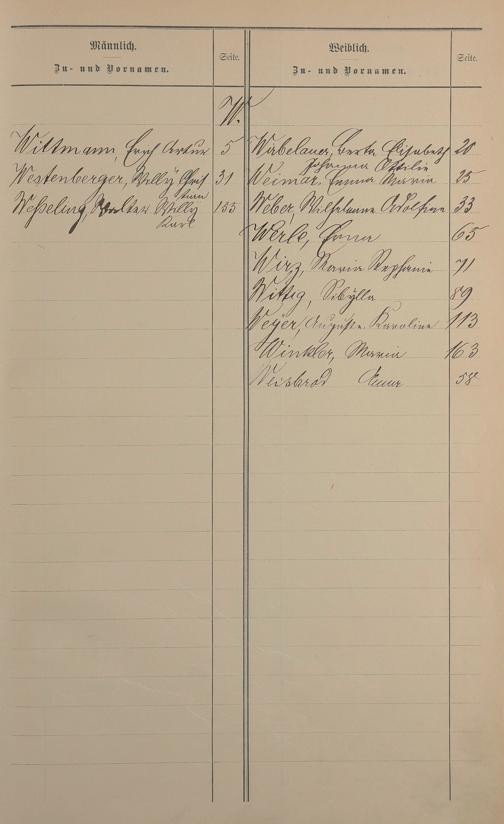 Männlich.
Zu- und Vornamen.
Seite.
Weiblich.
Zu- und Vornamen.
Seite.
W.
Wittmann, Erich Artur 5
Westenberger, Willy 31
Wesseling, Walter Willy 135
Karl
Wabelauer, Berta Elisabeth 20
Johanna Ottilie
Weimar, Emma Maria 25
Weber, Wilhelmine Adolfine 33
Werle, Erna 65
Wirz, Maria Stephanie 71
Wittig, Sibylla 89
Weyer, Auguste Karoline 113
Winkler, Maria 163
Weisbrod Anna 58